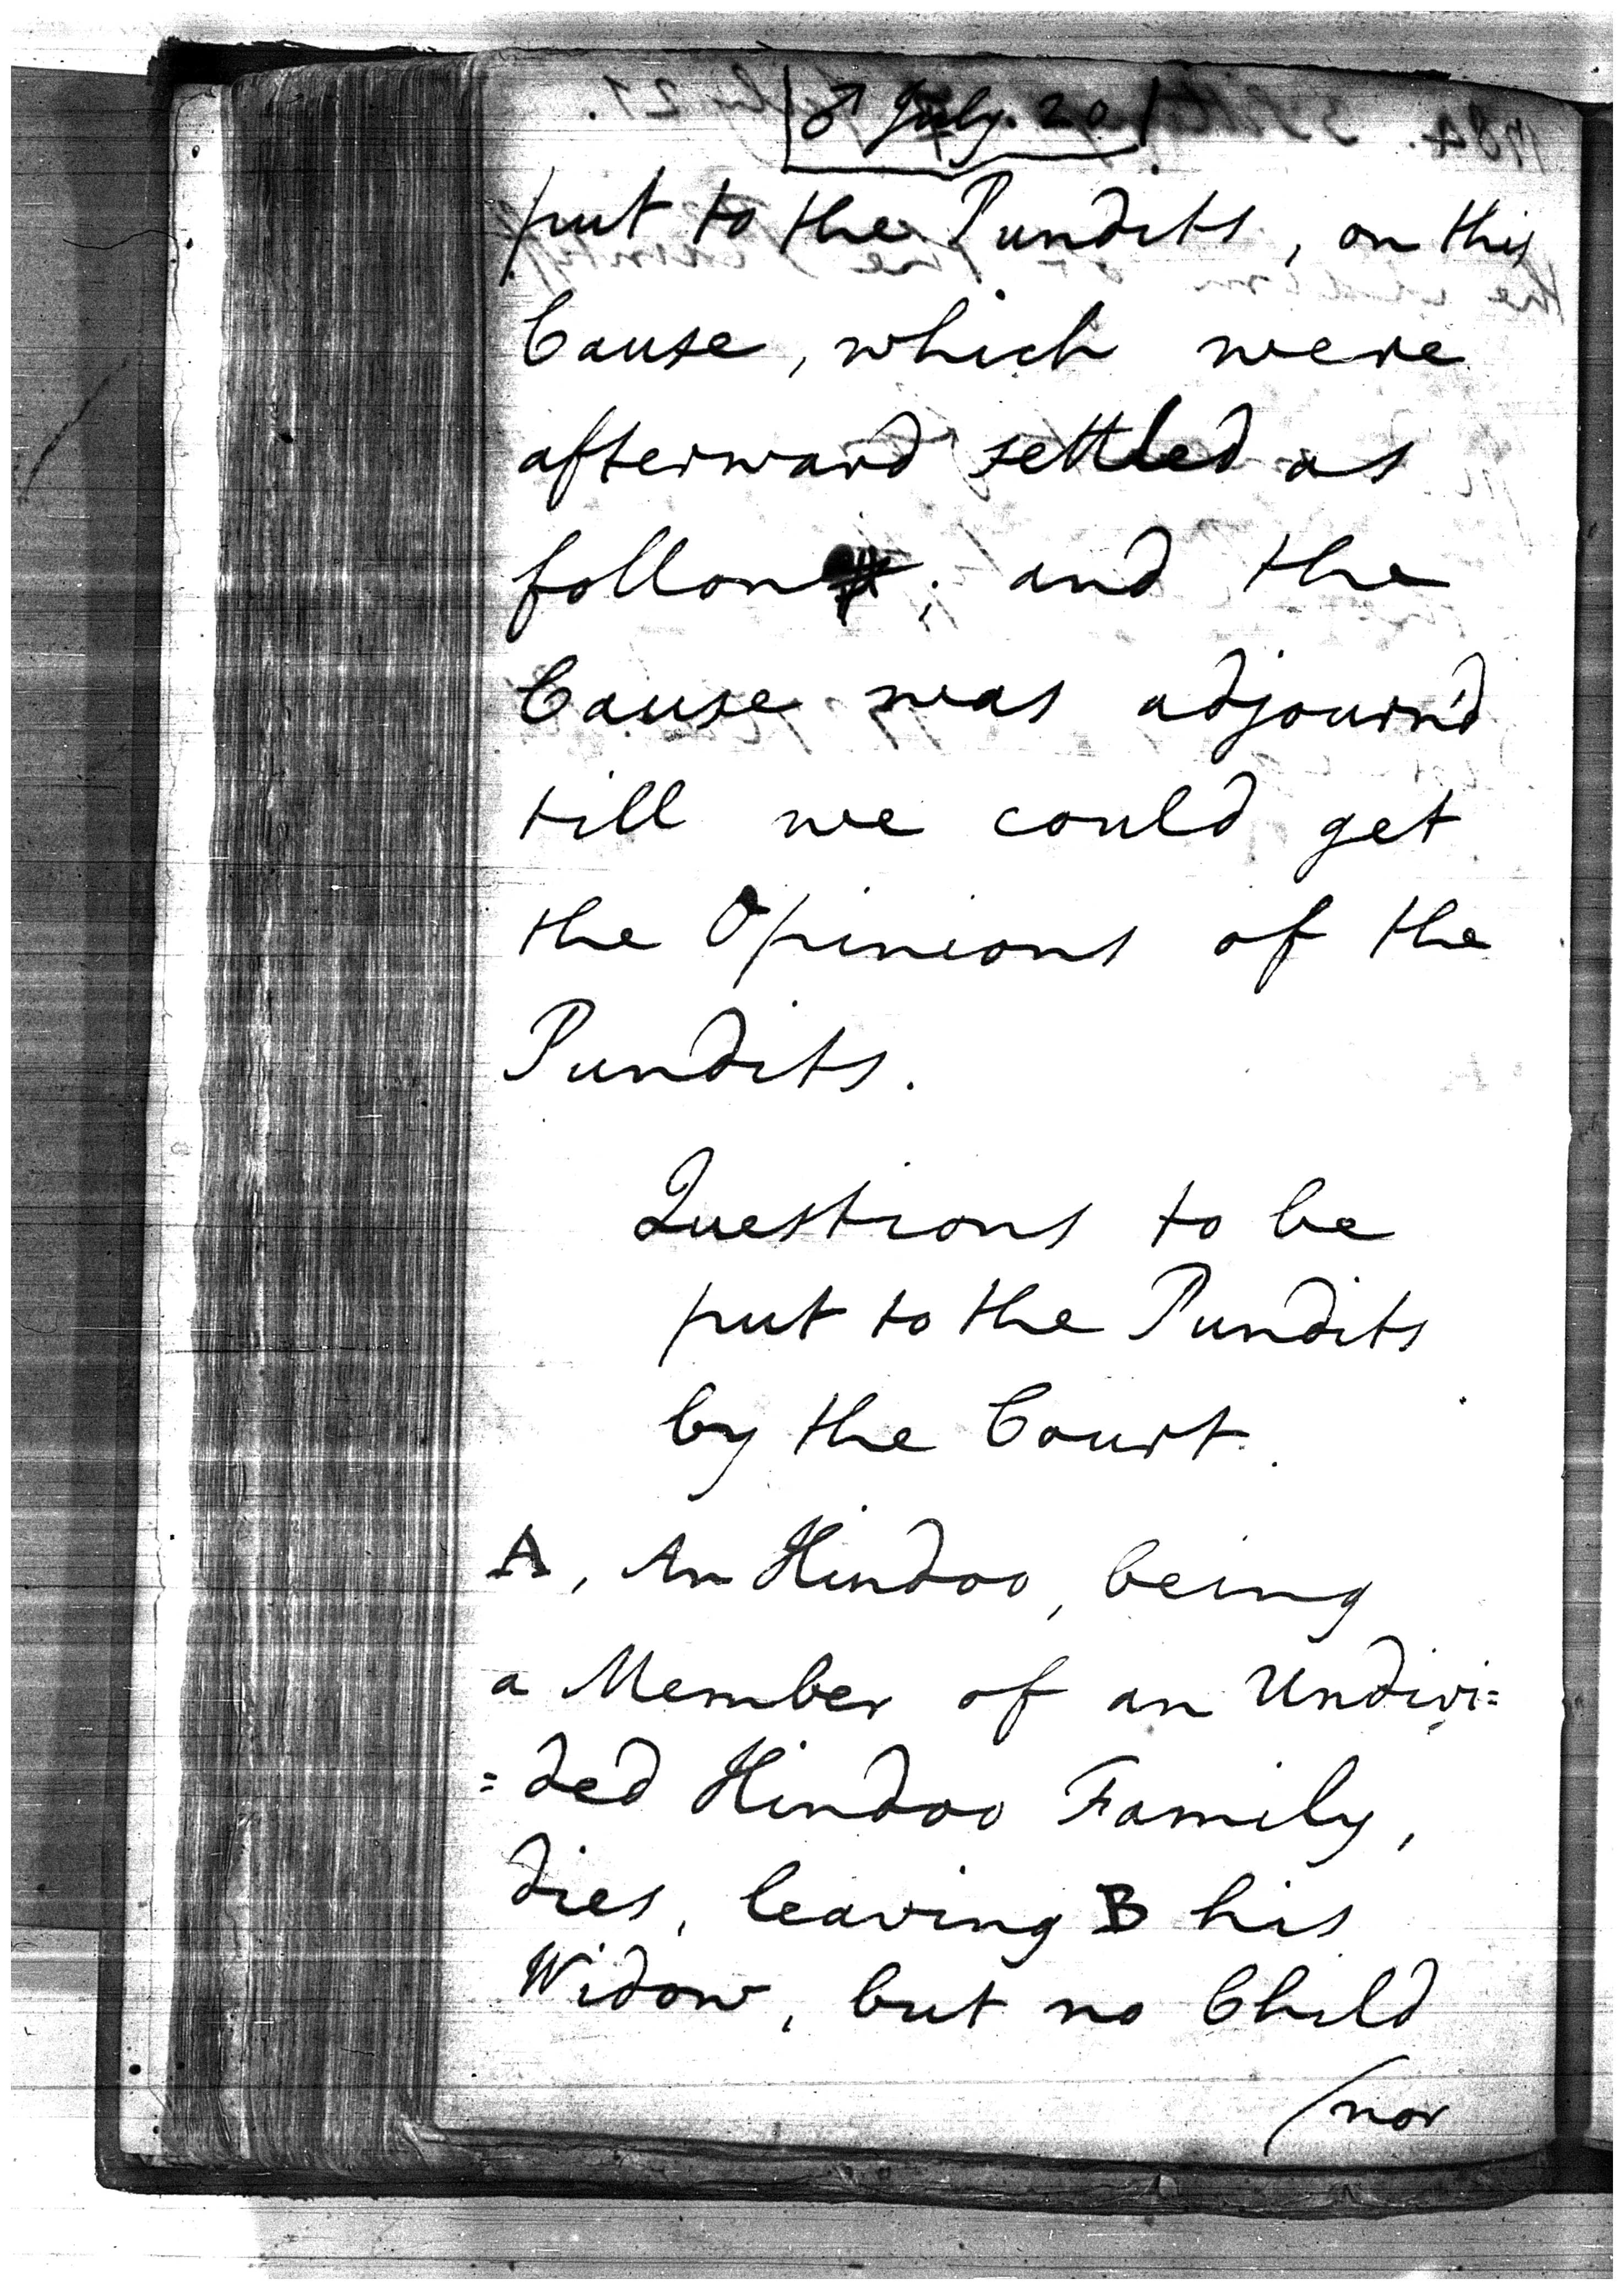 ♂ July. 20
put to the Pundits, on this
Cause, which were
afterward settled as
follow; and the
Cause was adjourn'd
till we could get
the Opinions of the
Pundits.
Questions to be
put to the Pundits
by the Court.
A, An Hindoo, being
a Member of an Undivi=
=ded Hindoo Family,
dies, leaving B his
Widow, but no Child
/nor